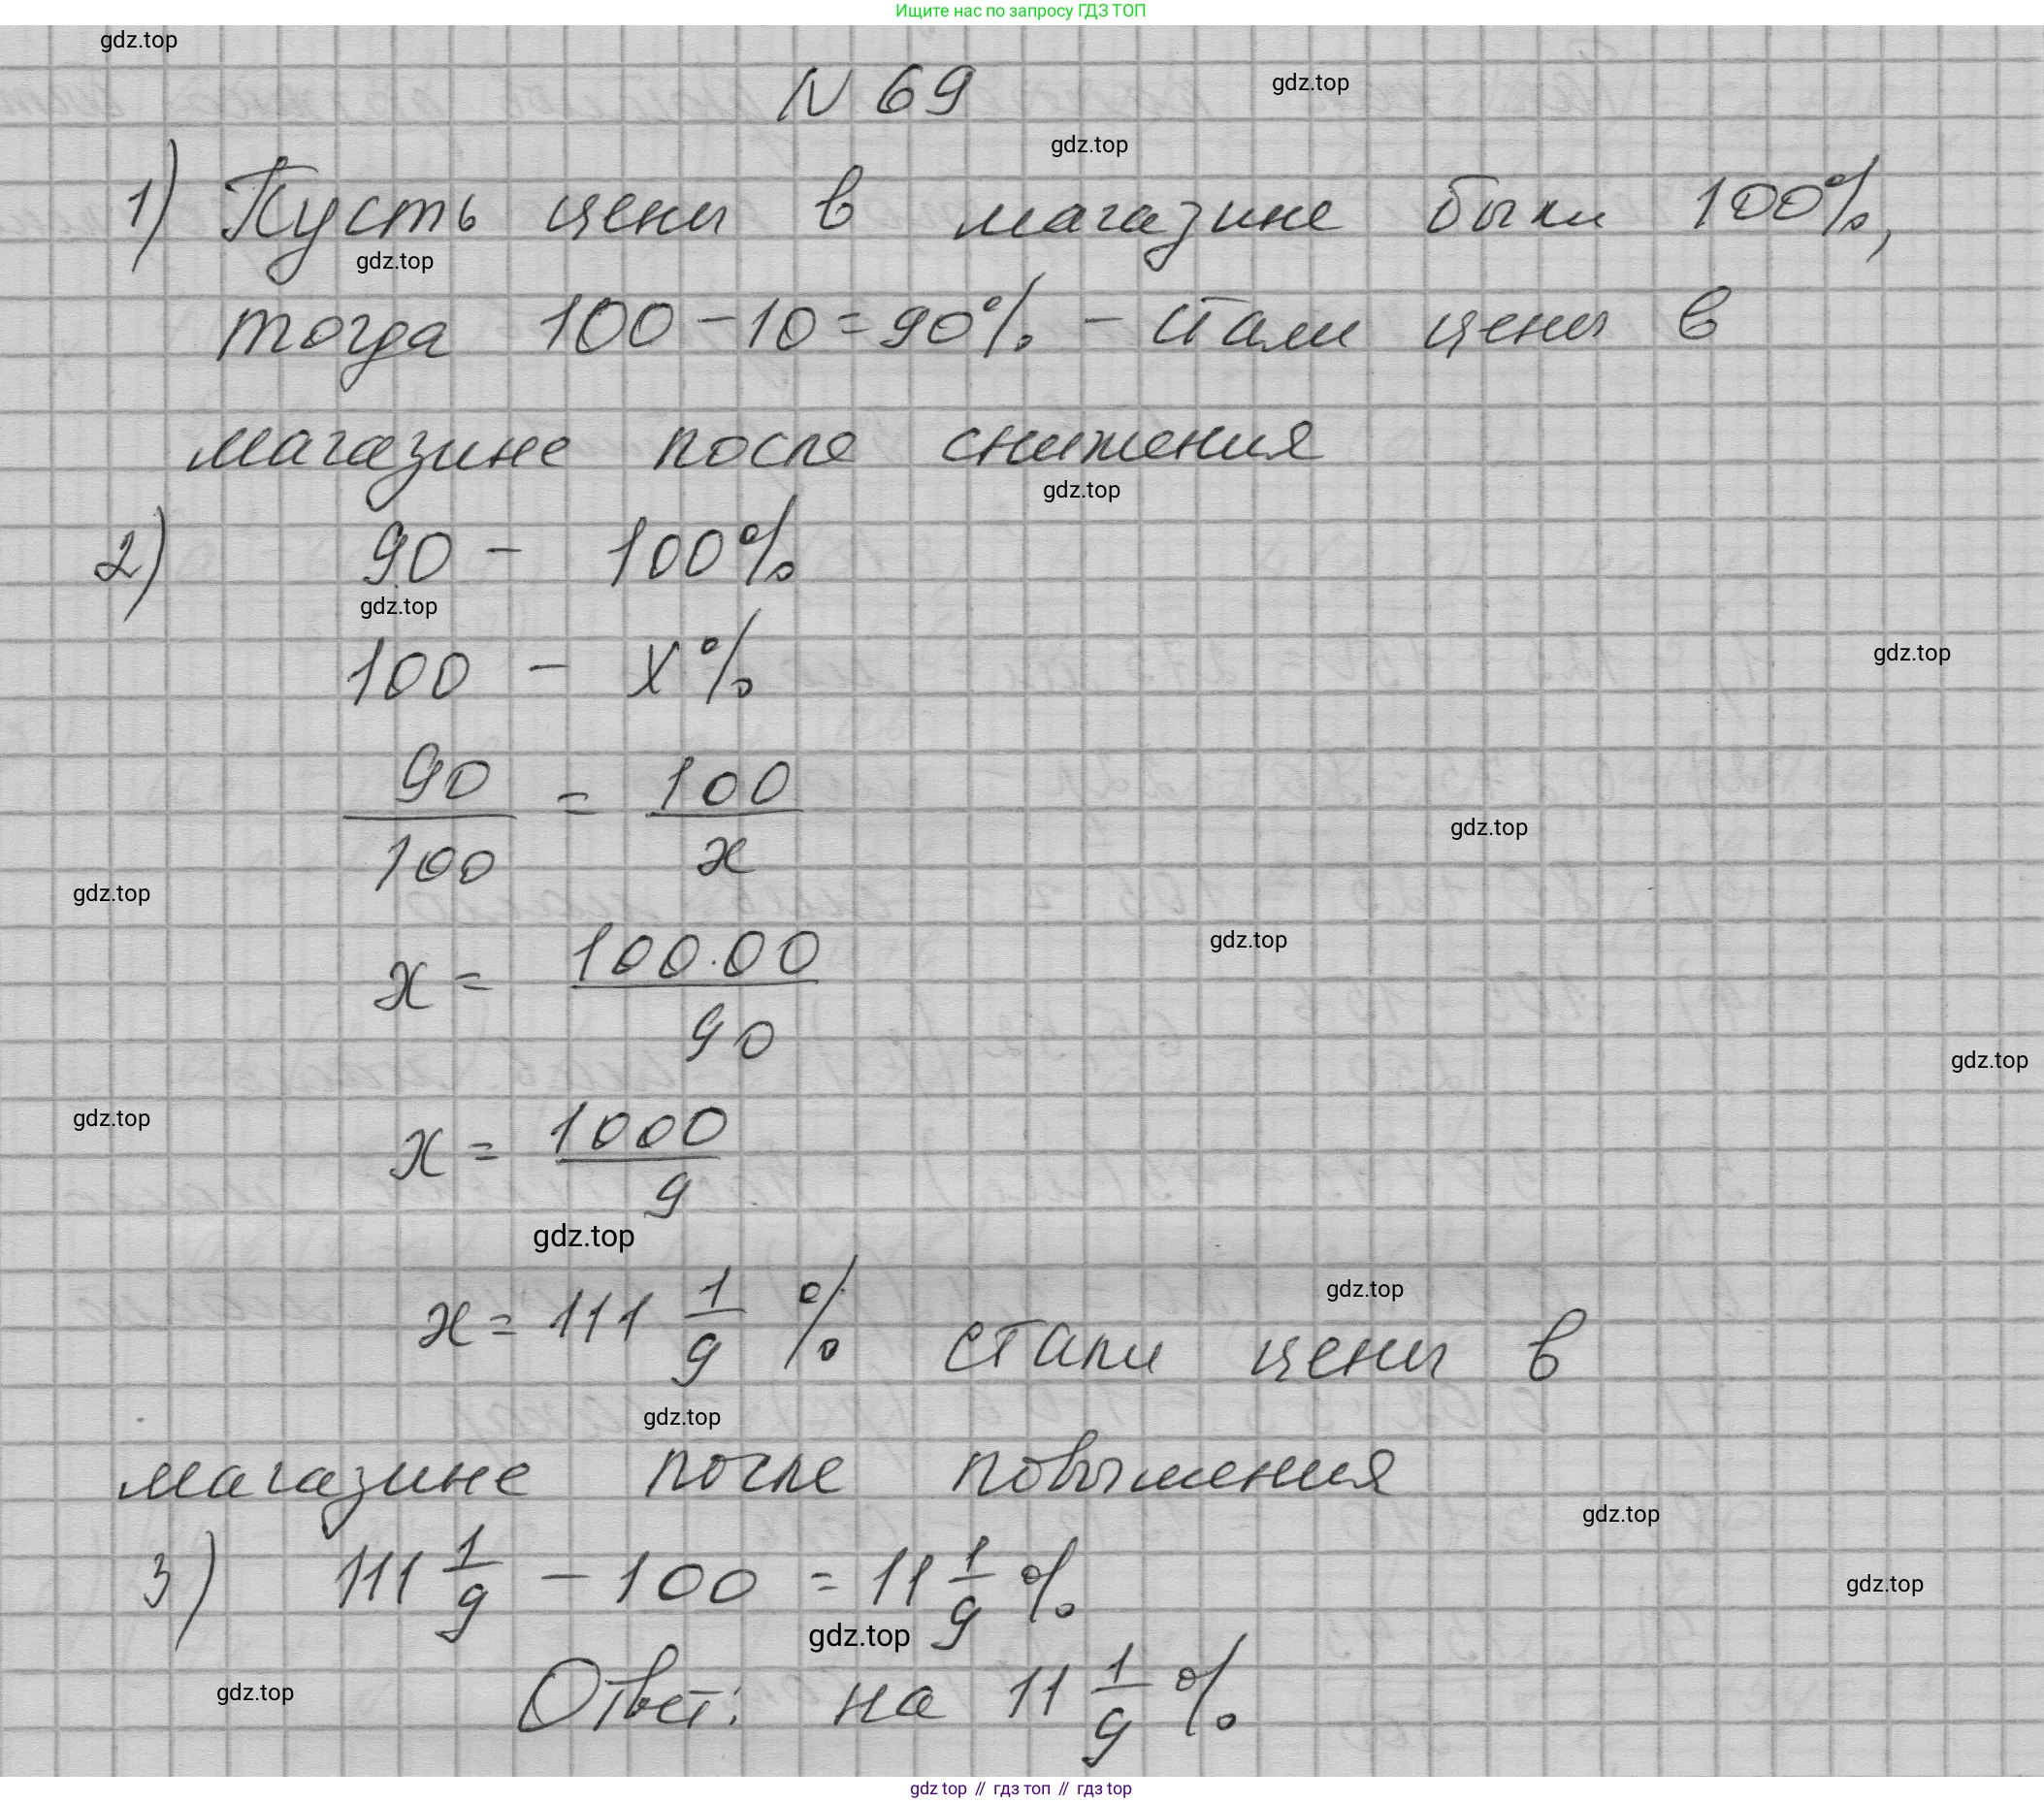 Ищите нас по запросу ГДЗ ТОП
gdz.top
N 69
gdz.top
gdz.top
1) Пусть цены в магазине были 100%,
gdz.top
тогда 100 - 10 = 90% - стали цены в
магазине после снижения
gdz.top
2) 90 - 100%
gdz.top
100 - x%
gdz.top
90/100 = 100/x
gdz.top
gdz.top
x = 100·00/90
gdz.top
gdz.top
gdz.top
x = 1000/9
gdz.top
gdz.top
x = 111 1/9 % стали цены в
gdz.top
магазине после повышения
gdz.top
3) 111 1/9 - 100 = 11 1/9 %
gdz.top
gdz.top
gdz.top
Ответ: на 11 1/9 %
gdz top // гдз топ // гдз top